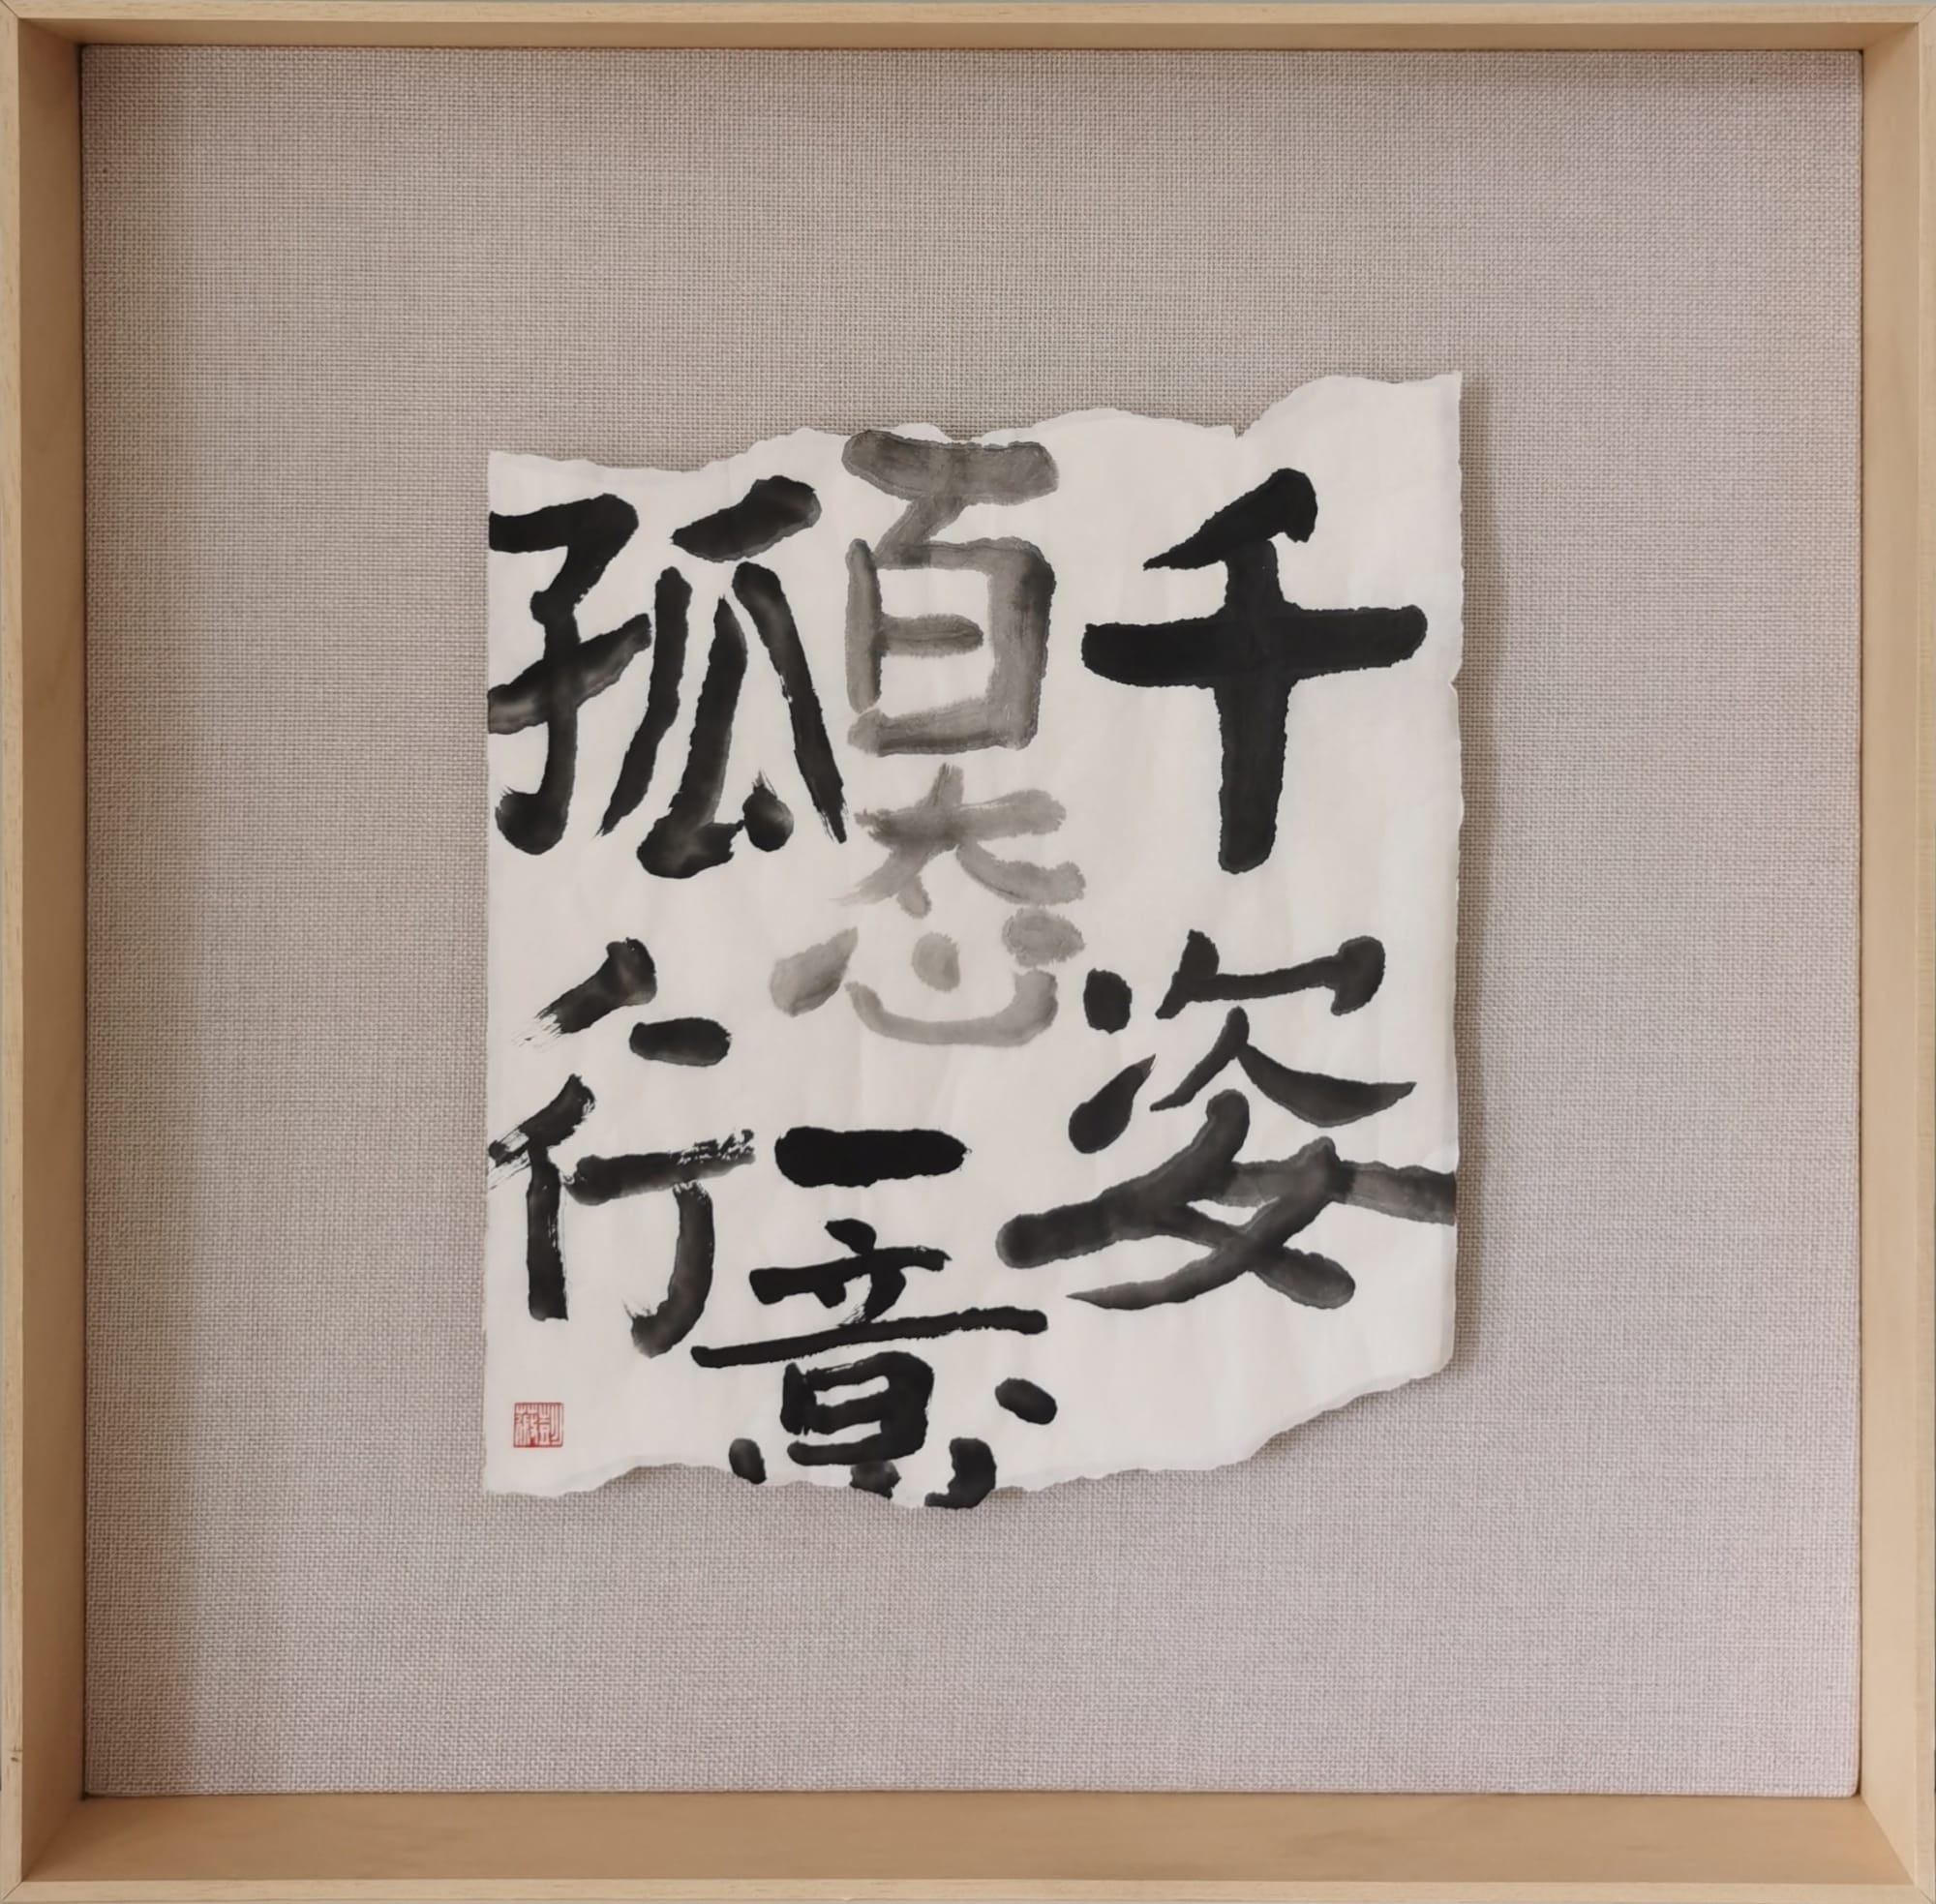 千姿
百态
一意
孤行